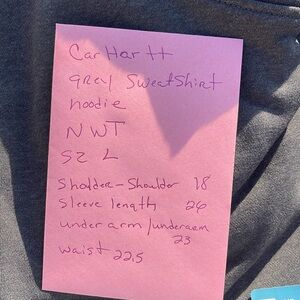 CarHartt
grey SweatShirt
hoodie
NWT
SZ L
Sholder-Shoulder 18
Sleeve length 26
under arm/underarm
23
waist 22.5